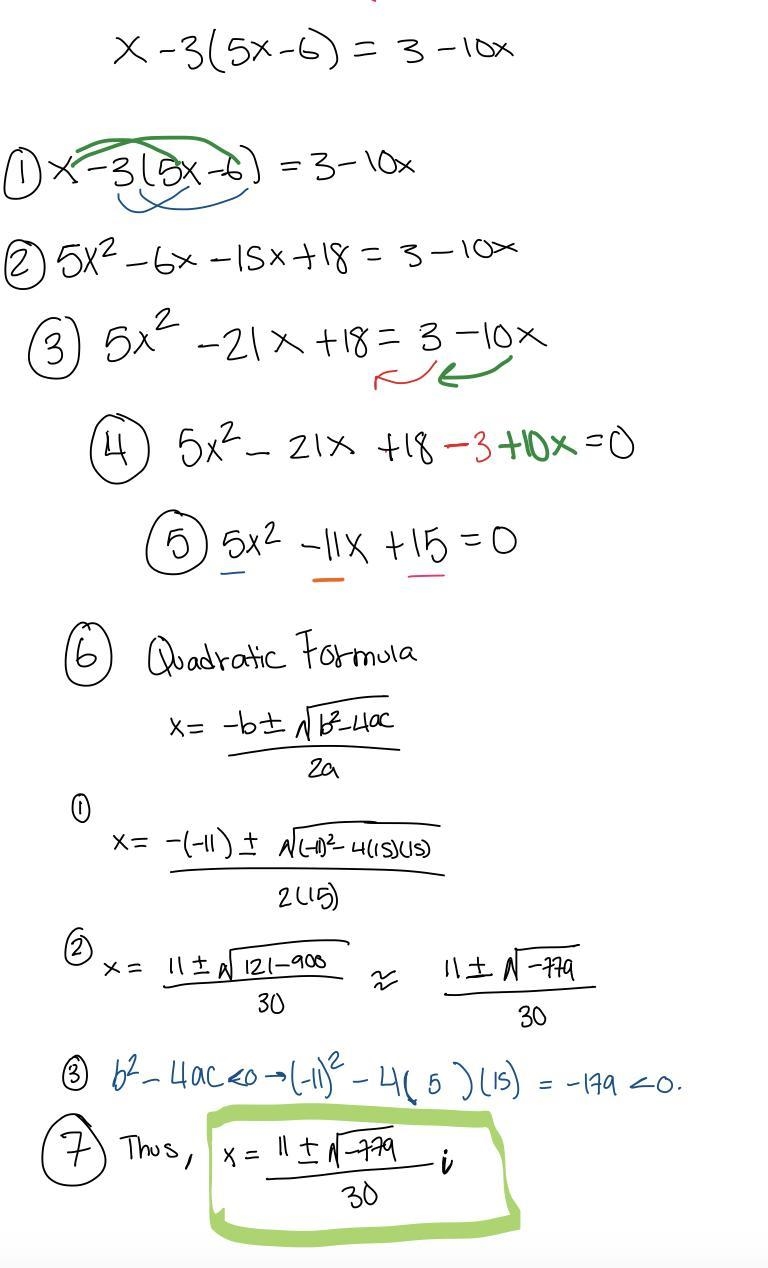 x - 3(5x - 6) = 3 - 10x
① x - 3(5x - 6) = 3 - 10x
② 5x² - 6x - 15x + 18 = 3 - 10x
③ 5x² - 21x + 18 = 3 - 10x
④ 5x² - 21x + 18 - 3 + 10x = 0
⑤ 5x² - 11x + 15 = 0
⑥ Quadratic Formula
x = (-b ± √(b² - 4ac)) / 2a
① x = (-(-11) ± √((-11)² - 4(15)(15))) / 2(15)
② x = (11 ± √(121 - 900)) / 30 ≈ (11 ± √(-779)) / 30
③ b² - 4ac < 0 → (-11)² - 4(5)(15) = -179 < 0.
⑦ Thus, x = (11 ± √(-779)) / 30 i